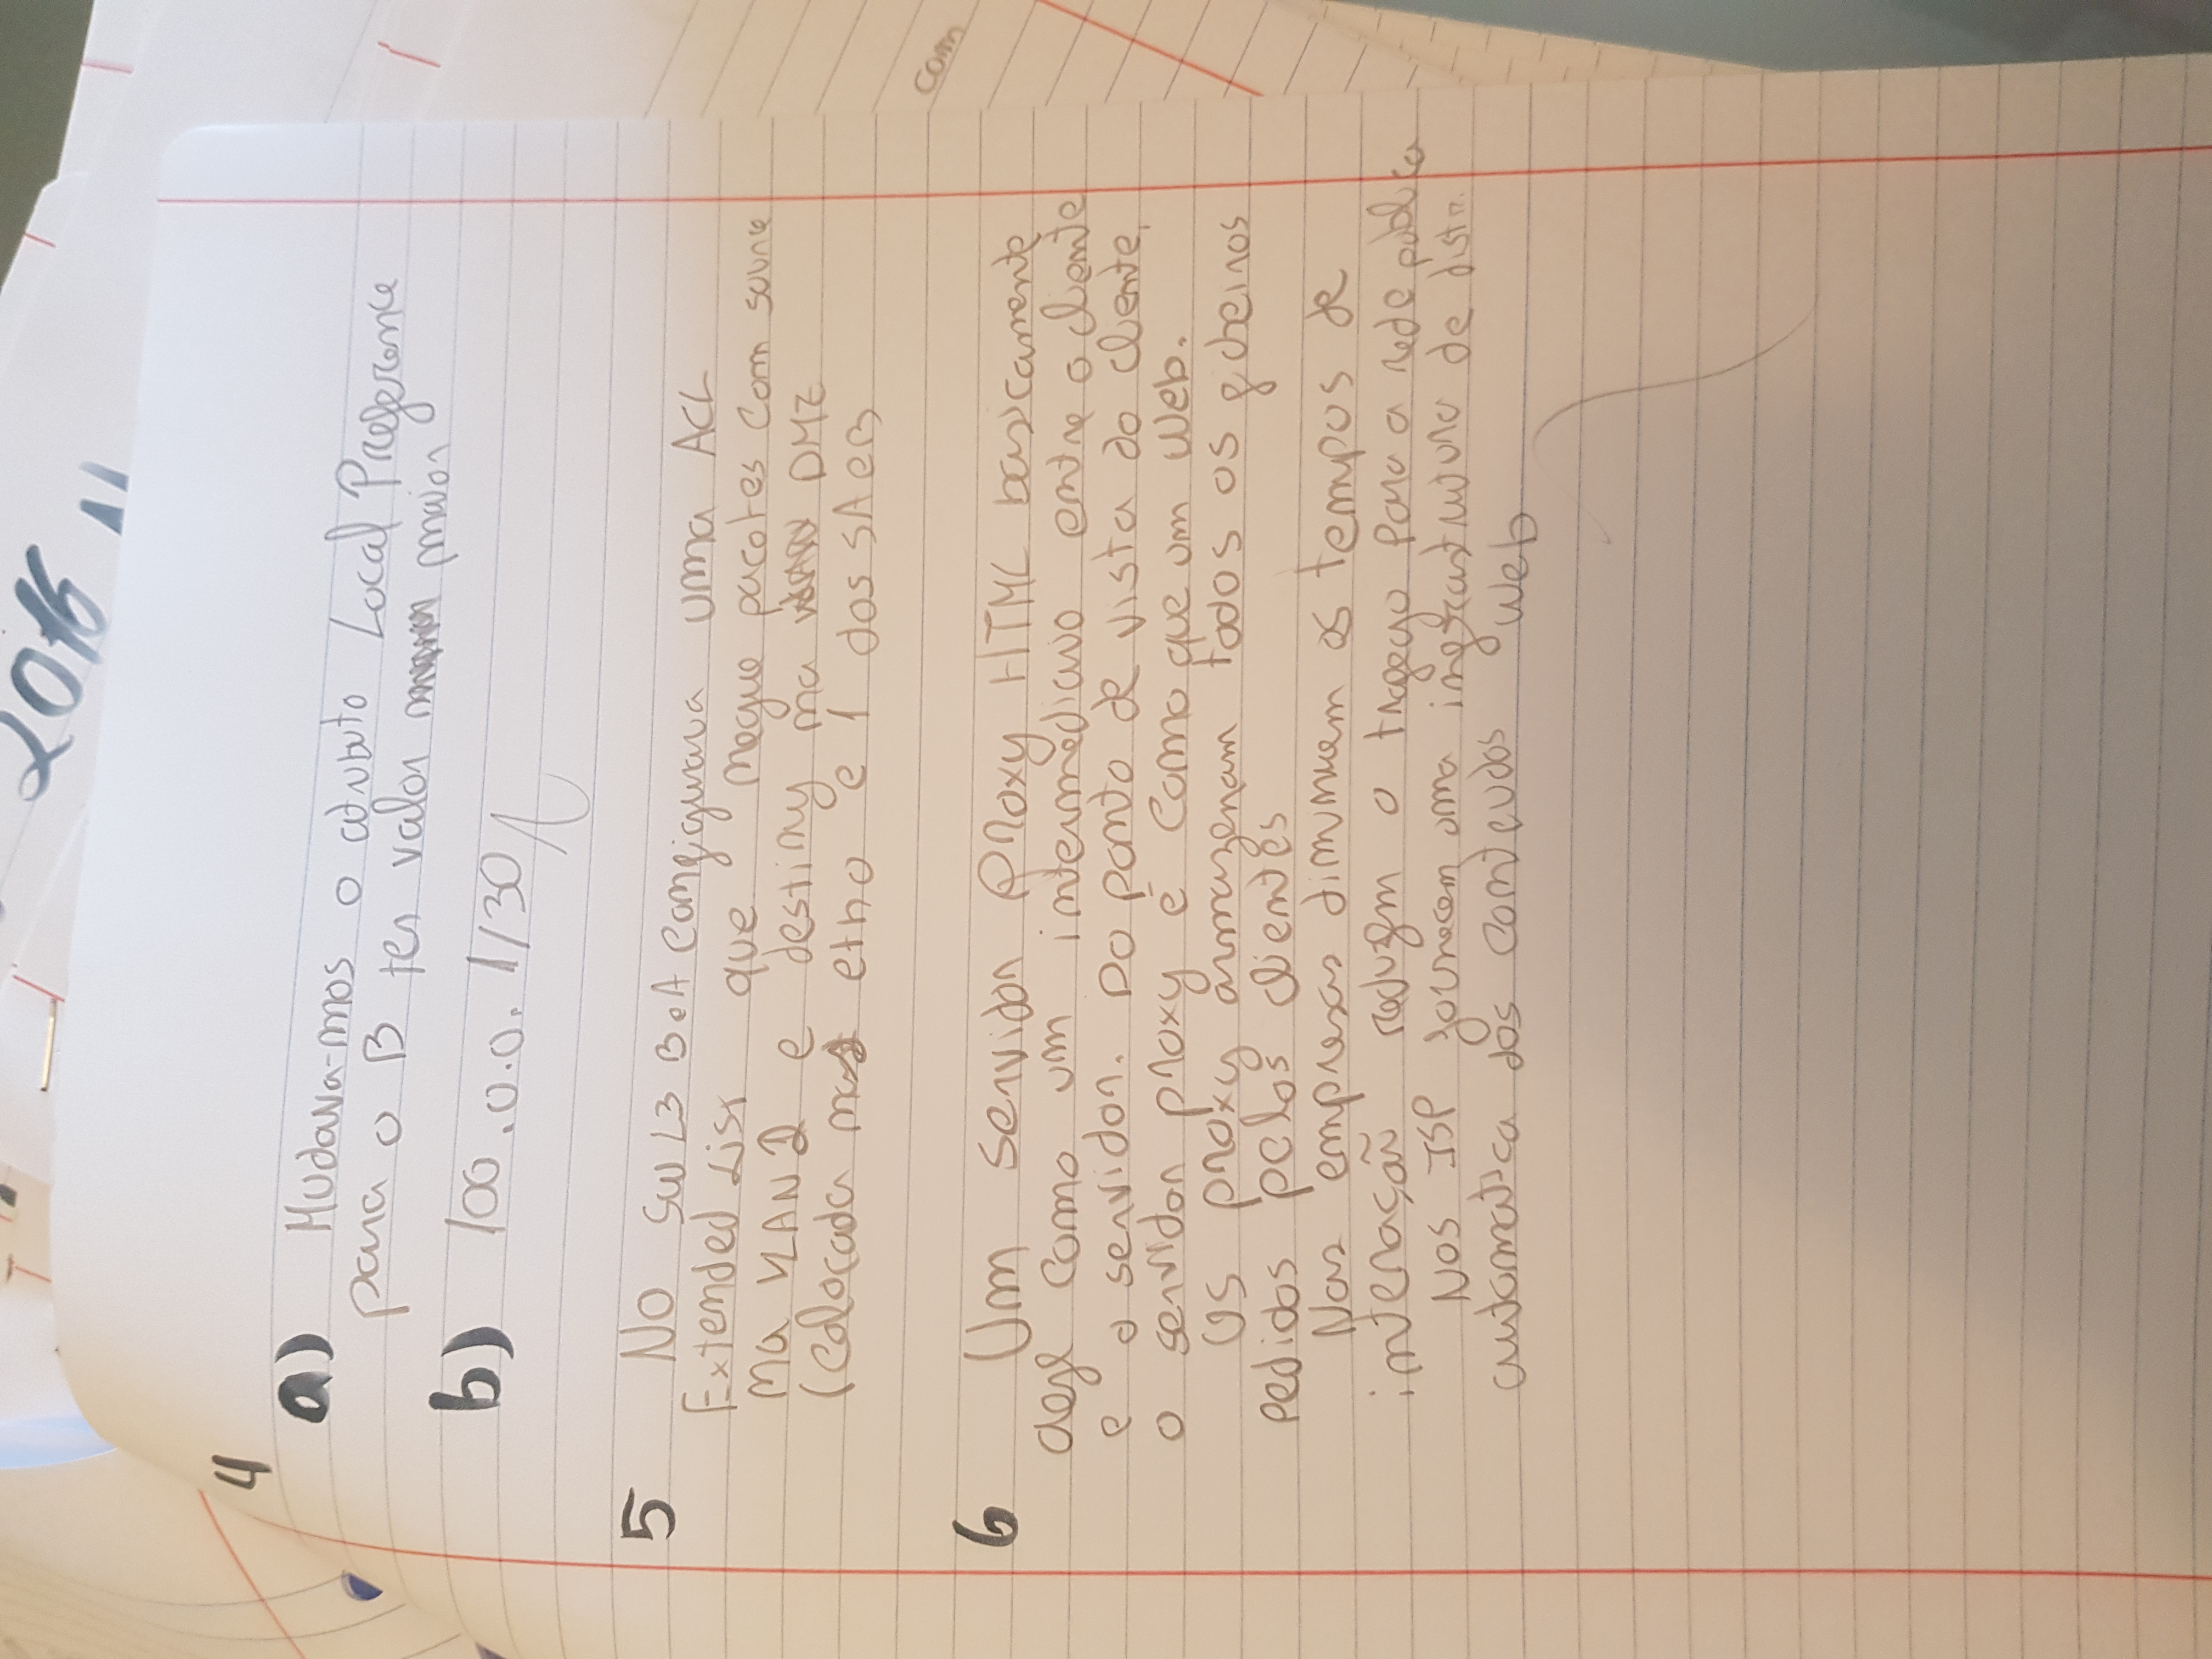 2016
4
a) Mudava-mos o atributo Local Preference
para o B ter valor maior
b) 100.0.0.1/30
5 No SW L3 B e A configurava uma ACL
Extended List que negue pacotes com source
na VLAN 2 e destiny na DMZ
(colocada nas eth0 e 1 dos SA e B
6 Um servidor Proxy HTML basicamente
age como um intermediario entre o cliente
e o servidor. Do ponto de vista do cliente,
o servidor proxy é como que um Web.
Os proxy armazenam todos os ficheiros
pedidos pelos clientes
Nas empresas diminuem os tempos de
interação reduzem o trafego para a rede publica
Nos ISP fornecem uma infrastrutura de distr.
automatica dos conteudos Web
com